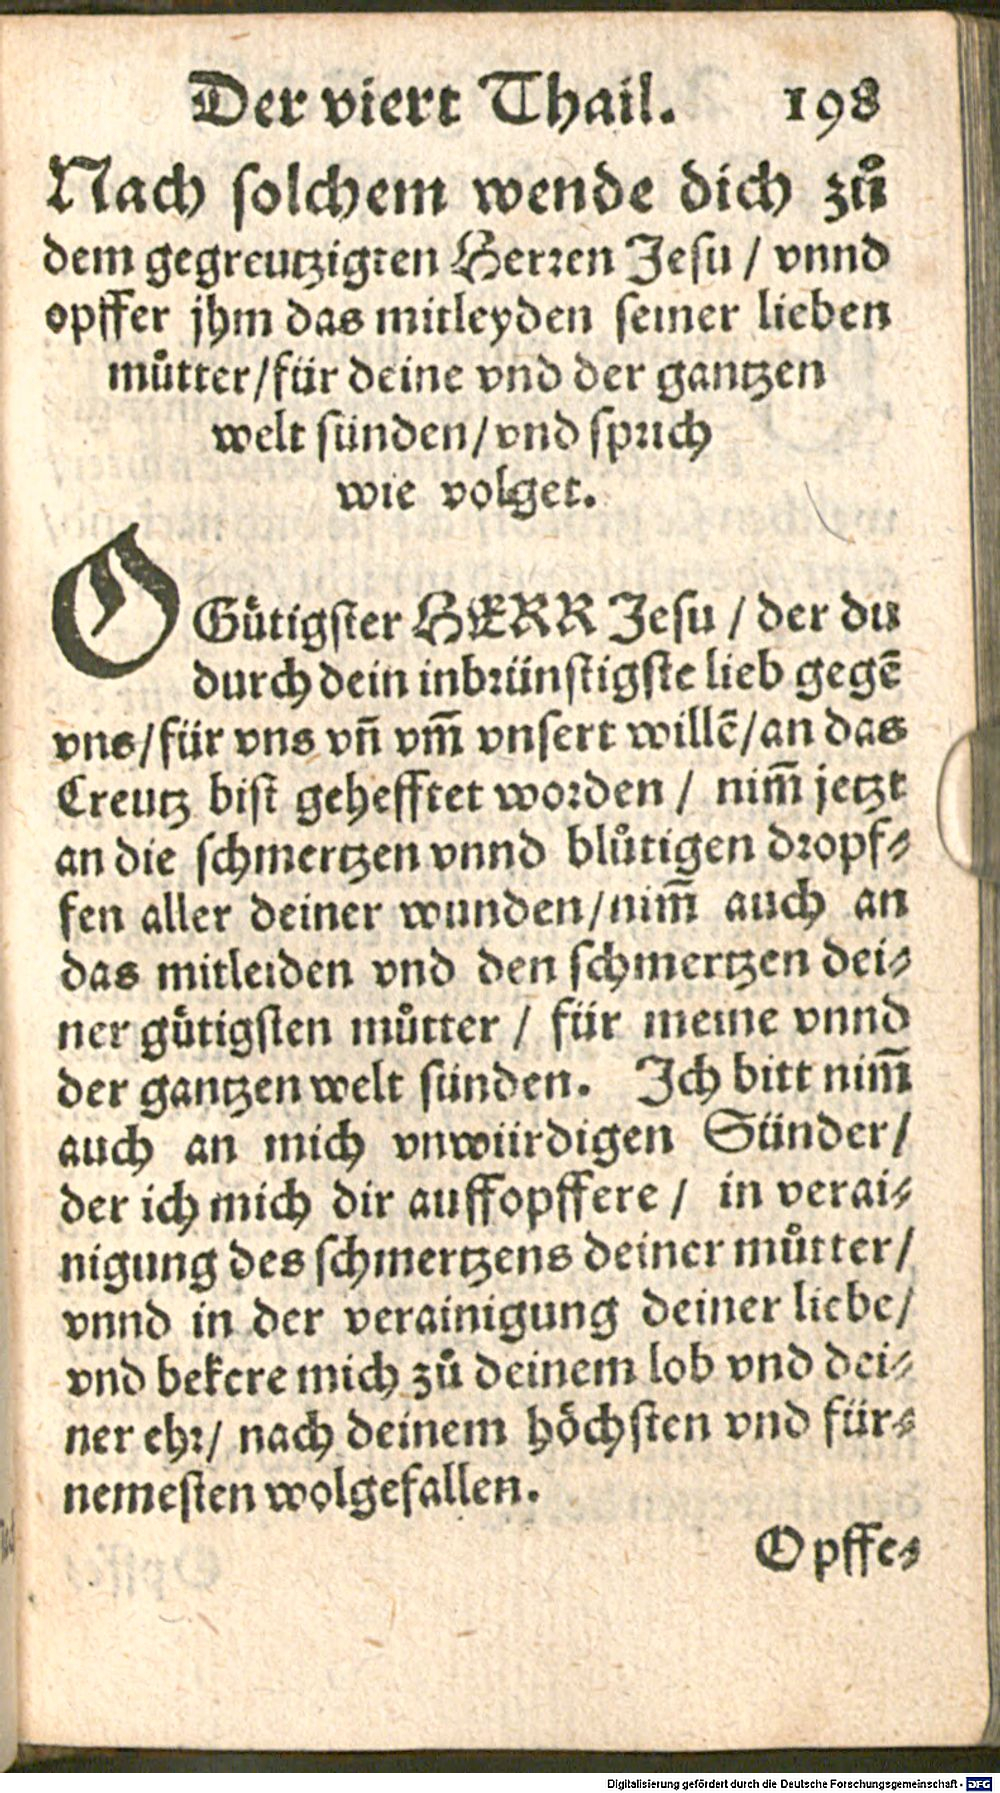 Der viert Thail. 198
Nach ſolchem wende dich zuͦ
dem gegreutzigten Herꝛen Jeſu / vnnd
opffer jhm das mitleyden ſeiner lieben
muͦtter/für deine vnd der gantzen
welt ſünden/vnd ſpꝛich
wie volget.
O Guͤtigſter HERR Jeſu / der du
durch dein inbꝛünſtigſte lieb gegē
vns/für vns vn̄ vm̄ vnſert willē/an das
Creutz biſt gehefftet woꝛden / nim̄ jetzt
an die ſchmertzen vnnd bluͦtigen dꝛopf⸗
fen aller deiner wunden/nim̄ auch an
das mitleiden vnd den ſchmertzen dei⸗
ner guͤtigſten muͦtter / für meine vnnd
der gantzen welt ſünden. Ich bitt nim̄
auch an mich vnwürdigen Sünder/
der ich mich dir auffopffere / in verai⸗
nigung des ſchmertzens deiner muͦtter/
vnnd in der verainigung deiner liebe/
vnd bekere mich zuͦ deinem lob vnd dei⸗
ner ehꝛ/ nach deinem hoͤchſten vnd für⸗
nemeſten wolgefallen.
Opffe⸗
Digitalisierung gefördert durch die Deutsche Forschungsgemeinschaft - DFG